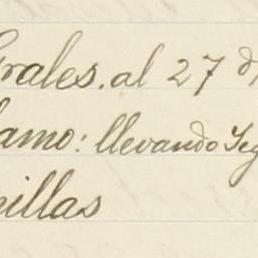 Grales. al 27 d
lamo: llevando Seg
nillas